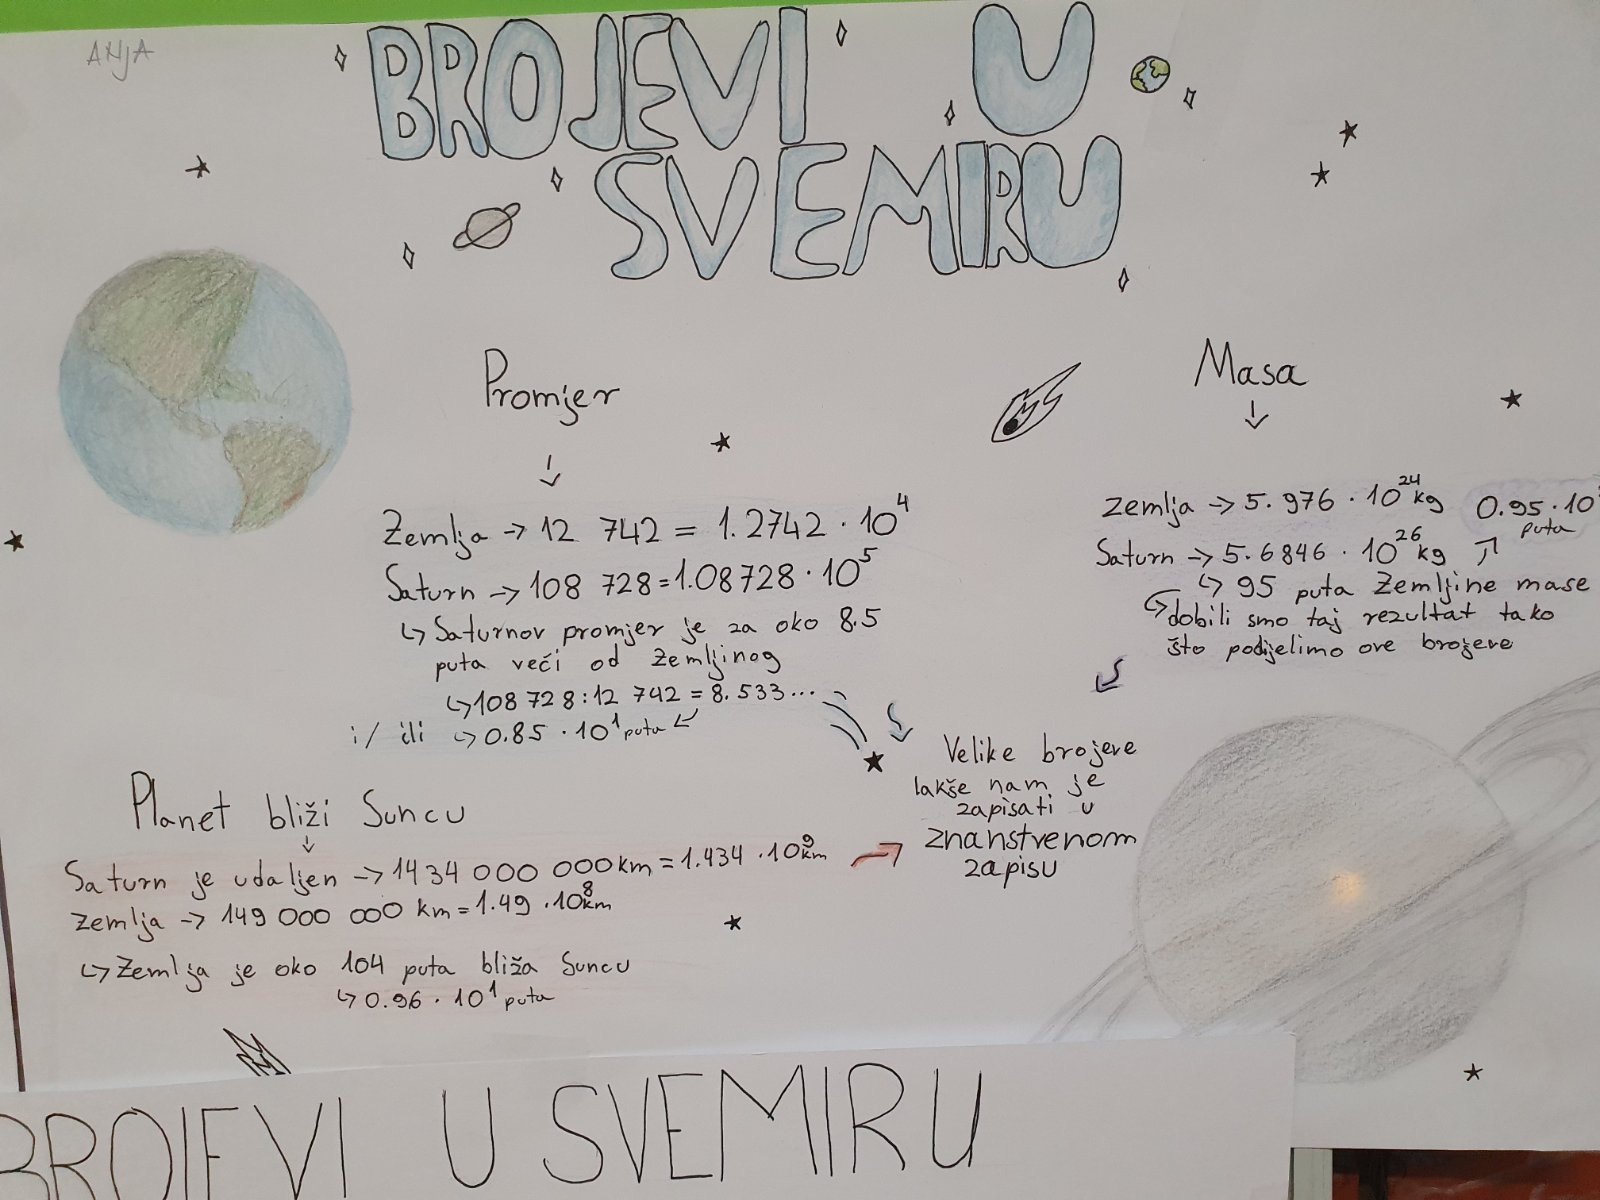 ANJA
BROJEVI U
SVEMIRU
Promjer
↓
Zemlja → 12 742 = 1.2742 · 10⁴
Saturn → 108 728 = 1.08728 · 10⁵
↳ Saturnov promjer je za oko 8.5
puta veći od Zemljinog
↳ 108 728 : 12 742 = 8.533...
i/ ili ↳ 0.85 · 10¹ puta
Masa
↓
Zemlja → 5.976 · 10²⁴ kg
0.95 · 10
puta
Saturn → 5.6846 · 10²⁶ kg
↳ 95 puta Zemljine mase
↳ dobili smo taj rezultat tako
što podijelimo ove brojeve
Planet bliži Suncu
↓
Saturn je udaljen → 1434 000 000 km = 1.434 · 10⁹ km
Zemlja → 149 000 000 km = 1.49 · 10⁸ km
↳ Zemlja je oko 104 puta bliža Suncu
↳ 0.96 · 10¹ puta
Velike brojeve
lakše nam je
zapisati u
znanstvenom
zapisu
BROJEVI U SVEMIRU